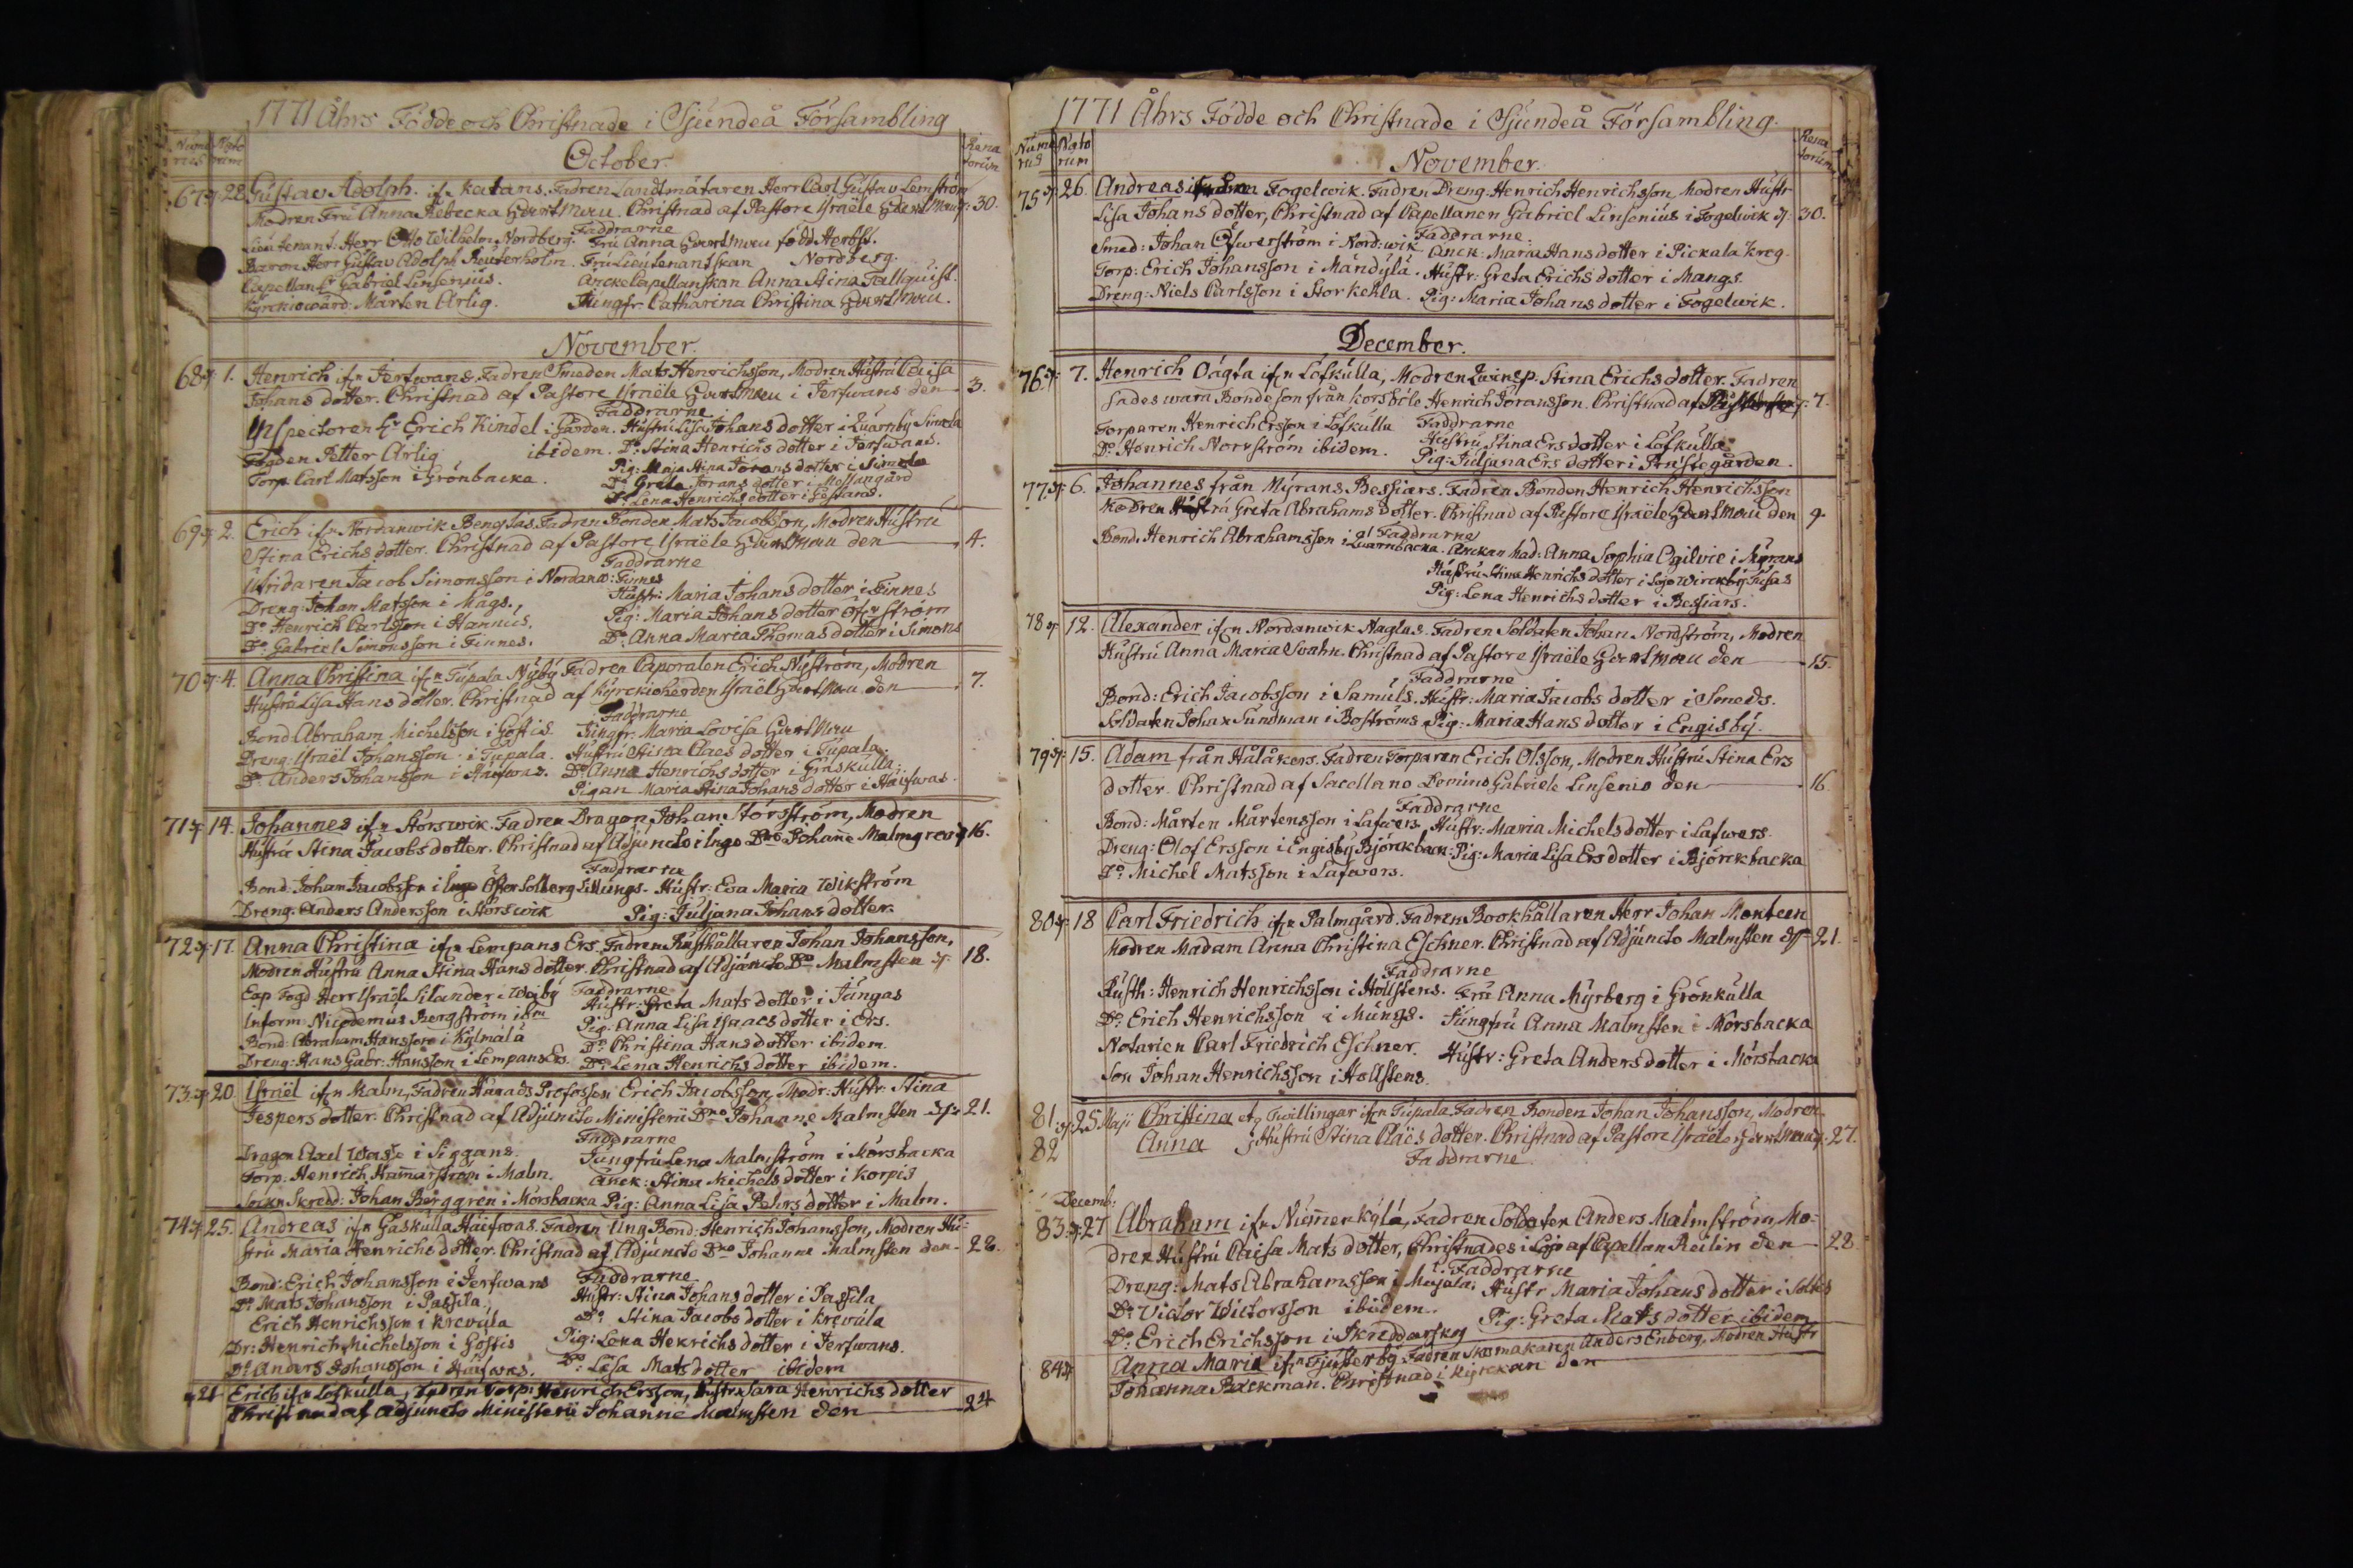 1771 Åhrs Födde och Christnade i Sjundeå Försambling
Nume rus Nato rum October. Rena torum
67 22 Gustav Adolph ifrn Katans. Fadren Landtmätaren Herr Carl Gustav Lemström
Modren Fru Anna Rebecka Christnad af Pastore Israële 30.
Faddrarne
Lieutenant: Herr Otto Wilhelm Nordberg. Fru Anna född Herbst.
Baron Herr Gustav Adolph Reuterholm. Fru Lieutenantskan Nordberg.
Capellan Hr Gabriel Linsenius. Anckecapellanskan Anna Stina Fallquist.
Kyrckiowärd: Mårten Ärlig. Jungfr: Catharina Christina
November.
68 1. Henrich ifrn Jerfwans. Fadren Smeden Mats Henrichsson, Modren Hustru Caisa
Johans dotter. Christnad af Pastore Israële i Jerfwans den 3.
Faddrarne
Inspectoren Hr Erich Kindel i Gården. Hustru Lisa Johans dotter i Quarnby
Fogden Petter Ärlig ibidem. Do Stina Henrichs dotter i Jerfwans.
Torp. Carl Matsson i Grönbacka. Pig: Maja Stina Jörans dotter i
Do Greta Jörans dotter i
Do Lena Henrichs dotter i
69 2. Erich ifrn Nordanwik Bengtas. Fadren Bonden Mats Jacobsson, Modren Hustru
Stina Erichs dotter. Christnad af Pastore Israële den 4.
Faddrarne
Utridaren Jacob Simonsson i Nordanw: Finnes Hustr: Maria Johans dotter i Finnes
Dreng: Johan Matsson i Mågs. Pig: Maria Johans dotter
Do Henrich Carlsson i Hannus. Do: Anna Maria Thomas dotter i Simons
Do Gabriel Simonsson i Finnes.
70 4. Anna Christina ifrn Tupala Nyby Fadren Caporalen Erich Nyström, Modren
Hustru Lisa Hans dotter. Christnad af Kyrckioherden Israël den 7.
Faddrarne
Bond: Abraham Michelsson i Göstis. Jungfr: Maria Lovisa
Dreng: Israël Johansson i Tupala. Hustru Stina Claes dotter i Tupala.
Do Anders Johansson i Häifwas. Do: Anna Henrichs dotter i Gräskulla.
Pigan Maria Stina Johans dotter i Häifwas.
71 14. Johannes ifrn Störswik. Fadren Dragon Johan Störsström, Modren
Hustru Stina Jacobs dotter. Christnad af Adjuncto i Ingo Dno Johanne Malmgren 16.
Faddrarne
Bond: Johan Jacobsson i Ingo Öster Solberg Sillungs. Hustr: Eva Maria Wikström
Dreng: Anders Andersson i Störswik Pig: Juljana Johans dotter.
72 17. Anna Christina ifrn Lempans Ers. Fadren Rusthållaren Johan Johansson,
Modren Hustru Anna Stina Hans dotter. Christnad af Adjuncto Dno Malmsten 18.
Faddrarne
Cap. Fogd Herr Israël Silander i Wejby Hustr: Greta Mats dotter i Jängas
Inform: Nicodemus Bergström ibm Pig: Anna Lisa Isaacs dotter i Ers.
Bond: Abraham Hansson i Kylmälä Do Christina Hans dotter ibidem.
Dreng: Hans Gabr: Hansson i Lempans Ers. Do: Lena Henrichs dotter ibidem.
73 20. Israël ifrn Malm, Fadren Härads Profossen Erich Jacobsson, Modr: Hustr: Stina
Jespers dotter. Christnad af Adjuncto Ministerii Dno Johanne Malmsten 21.
Faddrarne
Dragon Axel Wase i Siggans. Jungfru Lena Malmström i Mörsbacka
Torp: Henrich Hammarström i Malm. Anck: Stina Michels dotter i Korpis
Sockn Skredd: Johan Berggren i Mörsbacka Pig: Anna Lisa Pehrs dotter i Malm.
74 25. Andreas ifrn Gåskulla Häifwas. Fadren Ung Bond: Henrich Johansson, Modren Hu=
stru Maria Henrichs dotter. Christnad af Adjuncto Dno Johanne Malmsten den 28.
Faddrarne
Bond: Erich Johansson i Jerfwans Hustr: Stina Johans dotter i Passila
Do Mats Johansson i Passila. Do: Stina Jacobs dotter i Krevula
Erich Henrichsson i Krevula Pig: Lena Henrichs dotter i Jerfwans.
Dr: Henrich Michelsson i Göstis Do: Lisa Mats dotter ibidem
Do: Anders Johansson i Häifwas.
21 Erich ifrn Lofkulla, Fadren Torp: Henrich Ersson, Hustru Sara Henrichs dotter
Christnad af Adjuncto Ministerii Johanne Malmsten den 24
1771 Åhrs Födde och Christnade i Sjundeå Försambling.
Nume rus Nato rum November. Rena torum
75 26. Andreas Fogelwik. Fadren Dreng Henrich Henrichsson Modren Hustr
Lisa Johans dotter, Christnad af Capellanen Gabriel Linsenius i Fogelwik 30.
Faddrarne.
Smed: Johan Öfwerström i Nord:wik Anck: Maria Hans dotter i Pickala Krog.
Torp: Erich Johansson i Mändylä. Hustr: Greta Erichs dotter i Mangs.
Dreng: Niels Carlsson i Storkehla. Pig: Maria Johans dotter i Fogelwik.
December.
76 7. Henrich Oägta ifrn Lofkulla, Modren Stina Erichs dotter. Fadren
sades wara Bondeson från Korsböle Henrich Jöransson. Christnad af 7.
Faddrarne
Torparen Henrich Ersson i Lofkulla Hustru Stina Ers dotter i Lofkulla
Do Henrich Norrström ibidem. Pig: Juljana Ers dotter i Prästegården.
77 6. Johannes från Myrans Bessiars. Fadren Bonden Henrich Henrichsson
Modren Hustru Greta Abrahams dotter. Christnad af Pastore Israële den 9.
Faddrarne
Bond: Henrich Abrahamsson i Quarnbacka. Anckan Mad: Anna Sophia Ogilvie i Myrans
Hustru Stina Henrichs dotter i Lojo Wirckby
Pig: Lena Henrichs dotter i Bessiars.
78 12. Alexander ifrn Nordanwik Naglas. Fadren Soldaten Johan Nordström, Modren
Hustru Anna Maria Svahn. Christnad af Pastore Israële den 15.
Faddrarne
Bond: Erich Jacobsson i Samuls. Hustr: Maria Jacobs dotter i Smeds.
Soldaten Johan Sundman i Boströms Pig: Maria Hans dotter i Engisby.
79 15. Adam från Hålåkers. Fadren Torparen Erich Olsson, Modren Hustru Stina Ers
dotter. Christnad af Sacellano Domino Gabriele Linsenio den 16.
Faddrarne
Bond: Mårten Mårtensson i Lafwers Hustr: Maria Michels dotter i Lafwers.
Dreng: Olof Ersson i Engisby Björckback: Pig: Maria Lisa Ers dotter i Björckbacka
Do: Michel Matsson i Lafwers.
80 18 Carl Friedrich ifrn Palmgård. Fadren Bookhållaren Herr Johan Monteen
Modren Madam Anna Christina Eschner. Christnad af Adjuncto Malmsten 21.
Faddrarne
Rusth: Henrich Henrichsson i Hollstens. Fru Anna Myrberg i Grönkulla
Do: Erich Henrichsson i Mungs. Jungfru Anna Malmsten i Morsbacka
Notarien Carl Friedrich Eschner. Hustr: Greta Anders dotter i Mörsbacka
Son Johan Henrichsson i Hollstens.
81 25 Maji Christina et Twillingar ifrn Tupala Fadren Bonden Johan Johansson, Modren
82 Anna Hustru Stina Claës dotter. Christnad af Pastore Israële 27.
Faddrarne
Decemb:
83 27 Abraham ifrn Nummenkylä, Fadren Soldaten Anders Malmström, Mo=
dren Hustru Caisa Mats dotter, Christnades i Lojo af Capellan Reilin den 28.
Faddrarne
Dreng: Mats Abrahamsson i Mujala. Hustr Maria Johans dotter i
Do Victor Wictorsson ibidem. Pig: Greta Mats dotter ibidem
Do: Erich Erichsson i Skreddarskog
84 Anna Maria ifrn Tjusterby Fadren Skomakaren Anders Enberg, Modren Hustr
Johanna Backman. Christnad i Kyrckan den